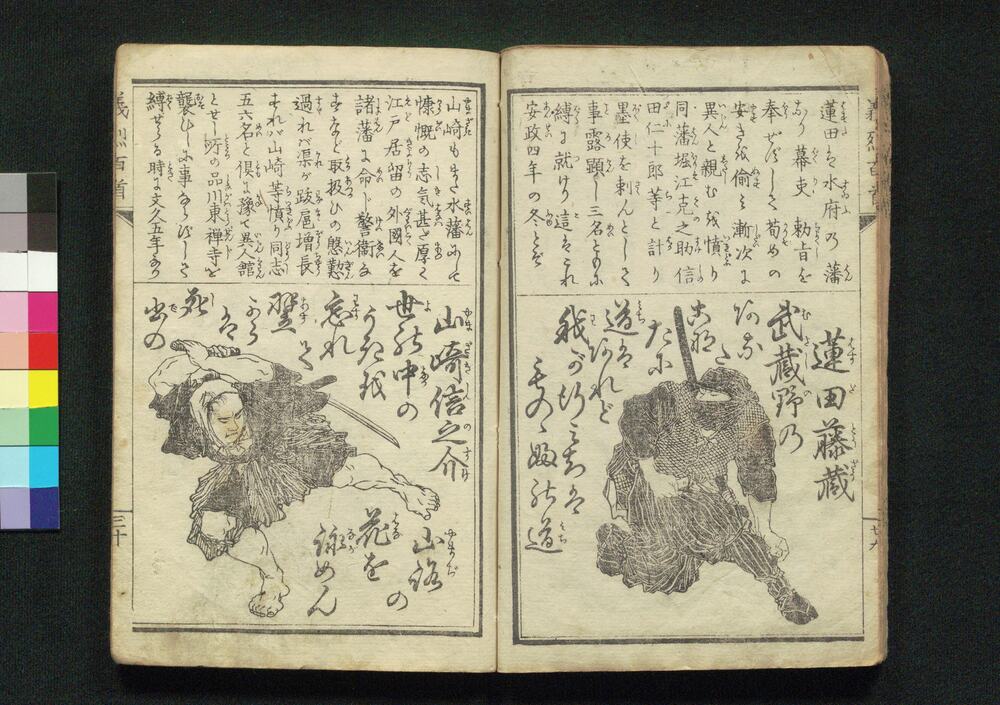 義烈百首
蓮田は水府の藩
にあり幕吏勅旨を
奉ぜずして苟めの
安きを偷み漸次に
異人と親むを憤り
同藩堀江克之助信
田仁十郎等と計り
墨使を刺んとしき
事露顕し三名ともに
縛に就けり這はこれ
安政四年の冬とぞ
蓮田藤蔵
武蔵野の
あなた
こなたに
道は
あれど
我が行
道
廿九
山崎もまた水藩にして
慷慨の志気甚だ厚く
江戸居留の外國人を
諸藩に命じ警衛な
すなど取扱ひの慇懃
過れバ渠が跋扈増長
すれバ山崎等憤り同志
五六名と倶に豫て異人館
とせし所の品川東禅寺を
襲ひしに事ならずしき
縛せらる時に文久五年なり
山崎信之介
世の中の
うきを
忘れ
翌は
死出の
山路の
花を
詠めん
義烈百首
三十